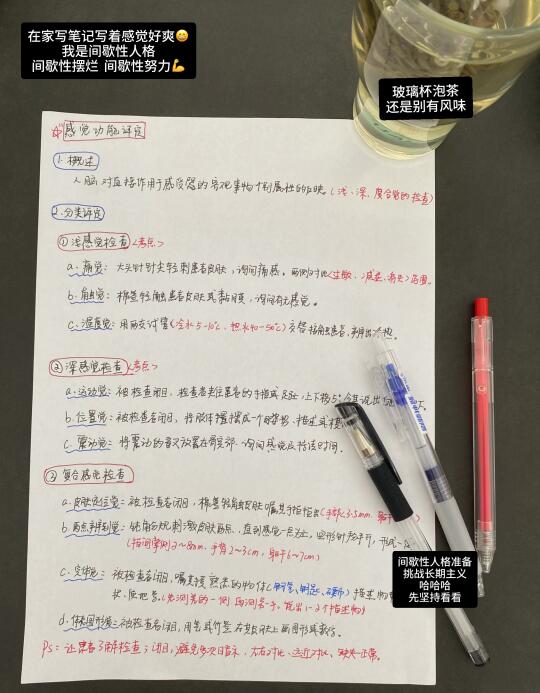 在家写笔记写着感觉好爽😄
我是间歇性人格
间歇性摆烂 间歇性努力💪
玻璃杯泡茶
还是别有风味
感觉功能评定
1.概述
人脑对直接作用于感受器的客观事物个别属性的反映。(浅、深、复合觉的检查)
2.分类评定
①浅感觉检查<考点>
a.痛觉:大头针针尖轻刺患者皮肤,询问痛感。两侧对比<过敏、减退、消失>范围。
b.触觉:棉签轻触患者皮肤或黏膜,询问有无感觉。
c.温度觉:用两支试管(冷水5-10℃、热水40-50℃)交替接触患者,
②深感觉检查<考点>
a.运动觉:被检查者闭目,检查者
上下移5°令其说出
b.位置觉:被检查者闭目,将肢体摆成一个姿势,描述其
c.震动觉:将震动的音叉放置在骨突部,询问感觉及持续时间。
③复合感觉检查
a.皮肤定位觉:被检查者闭目,棉签轻触皮肤嘱其手指指出(手部<3.5mm
b.两点辨别觉:
刺激皮肤两点,直到感觉一点为止,
(指间掌侧2~8mm、手背2~3cm、躯干6~7cm)
c.实体觉:被检查者闭目,嘱其摸熟悉的物体(钢笔、钥匙、硬币)
(先测患的一侧 再测另一手,
d.体表图形觉:被检查者闭目,用笔或竹签在其皮肤上画图形或数字。
Ps:让患者了解检查;闭目,避免多次暗示、左右对比、远近对比、
间歇性人格准备
挑战长期主义
哈哈哈
先坚持看看